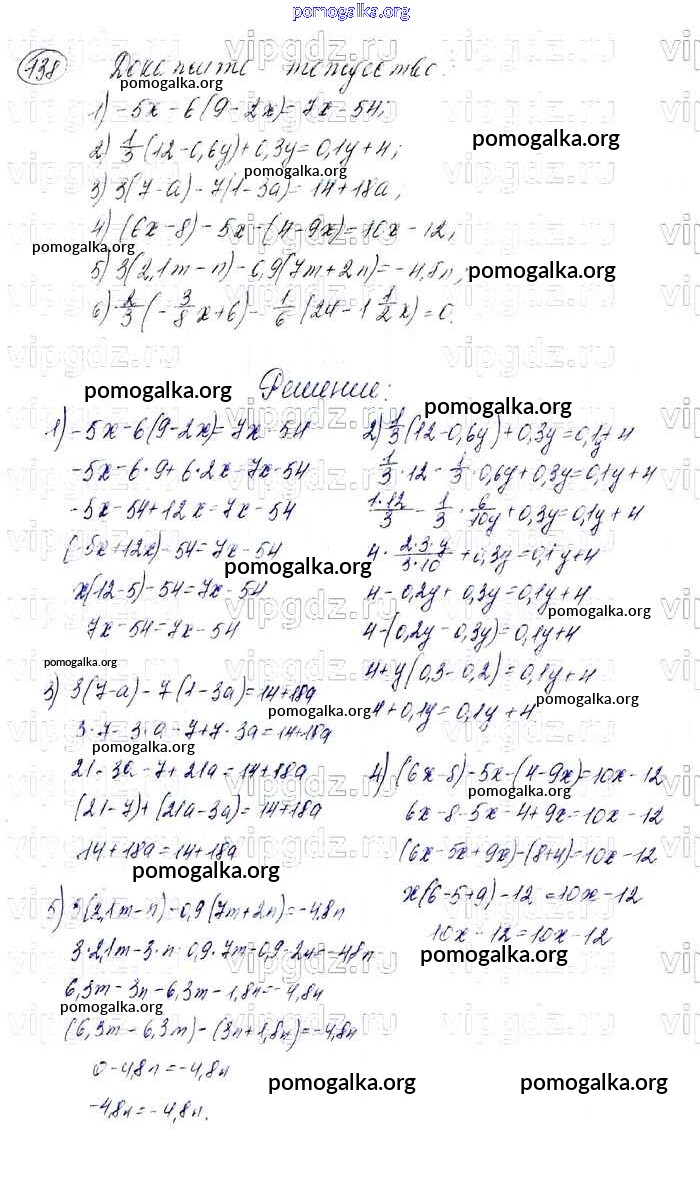 pomogalka.org
138 Докажите тождество:
1) -5x - 6(9 - 2x) = 7x - 54;
2) 1/3 (12 - 0,6y) + 0,3y = 0,1y + 4;
3) 3(7 - a) - 7(1 - 3a) = 14 + 18a;
4) (6x - 8) - 5x - (4 - 9x) = 10x - 12;
5) 3(2,1m - n) - 0,9(7m + 2n) = -4,8n;
6) 2/3 (-3/8 x + 6) - 1/6 (24 - 1 1/2 x) = 0.
Решение:
1) -5x - 6(9 - 2x) = 7x - 54
-5x - 6·9 + 6·2x = 7x - 54
-5x - 54 + 12x = 7x - 54
(-5x + 12x) - 54 = 7x - 54
x(12 - 5) - 54 = 7x - 54
7x - 54 = 7x - 54
2) 1/3 (12 - 0,6y) + 0,3y = 0,1y + 4
1/3 · 12 - 1/3 · 0,6y + 0,3y = 0,1y + 4
1·12/3 - 1/3 · 6/10y + 0,3y = 0,1y + 4
4 · 2·3·y/3·10 + 0,3y = 0,1y + 4
4 - 0,2y + 0,3y = 0,1y + 4
4 - (0,2y - 0,3y) = 0,1y + 4
4 + y(0,3 - 0,2) = 0,1y + 4
4 + 0,1y = 0,1y + 4
3) 3(7 - a) - 7(1 - 3a) = 14 + 18a
3·7 - 3·a - 7 + 7·3a = 14 + 18a
21 - 3a - 7 + 21a = 14 + 18a
(21 - 7) + (21a - 3a) = 14 + 18a
14 + 18a = 14 + 18a
4) (6x - 8) - 5x - (4 - 9x) = 10x - 12
6x - 8 - 5x - 4 + 9x = 10x - 12
(6x - 5x + 9x) - (8 + 4) = 10x - 12
x(6 - 5 + 9) - 12 = 10x - 12
10x - 12 = 10x - 12
5) 3(2,1m - n) - 0,9(7m + 2n) = -4,8n
3·2,1m - 3·n - 0,9·7m - 0,9·2n = -4,8n
6,3m - 3n - 6,3m - 1,8n = -4,8n
(6,3m - 6,3m) - (3n + 1,8n) = -4,8n
0 - 4,8n = -4,8n
-4,8n = -4,8n.